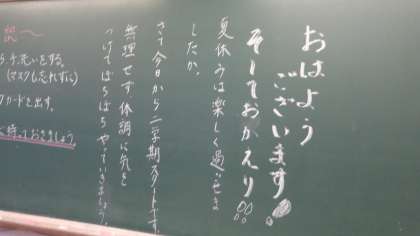 おはよう
ございます
そしておかえり!!
夏休みは楽しく過ごせま
したか。
さて今日から二学期スタートです。
無理せず体調に気を
つけてぼちぼちやっていきましょう
手洗いをする。
(マスクも忘れずに)
カードを出す。